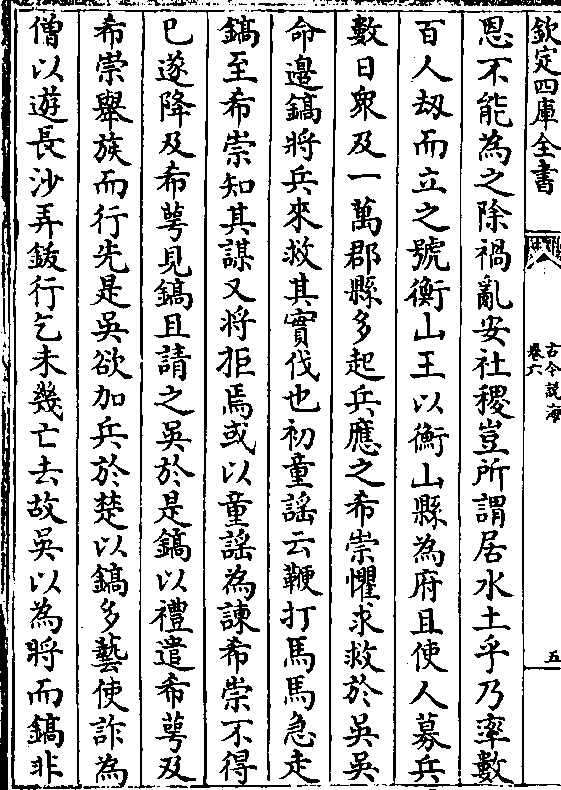 欽定四庫全書
古今說海
卷六
五
恩不能為之除禍亂安社稷豈所謂居水土乎乃率數
百人刼而立之號衡山王以衡山縣為府且使人募兵
數日衆及一萬郡縣多起兵應之希崇懼求救於吳吳
命邉鎬將兵來救其實伐也初童謡云鞭打馬馬急走
鎬至希崇知其謀又將拒焉或以童謡為諫希崇不得
已遂降及希萼見鎬且請之吳於是鎬以禮遣希萼及
希崇舉族而行先是吳欲加兵於楚以鎬多藝使詐為
僧以遊長沙弄鈸行乞未幾亡去故吳以為將而鎬非